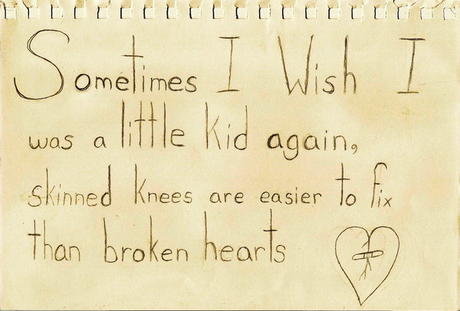 Sometimes I Wish I
was a little kid again,
skinned knees are easier to fix
than broken hearts